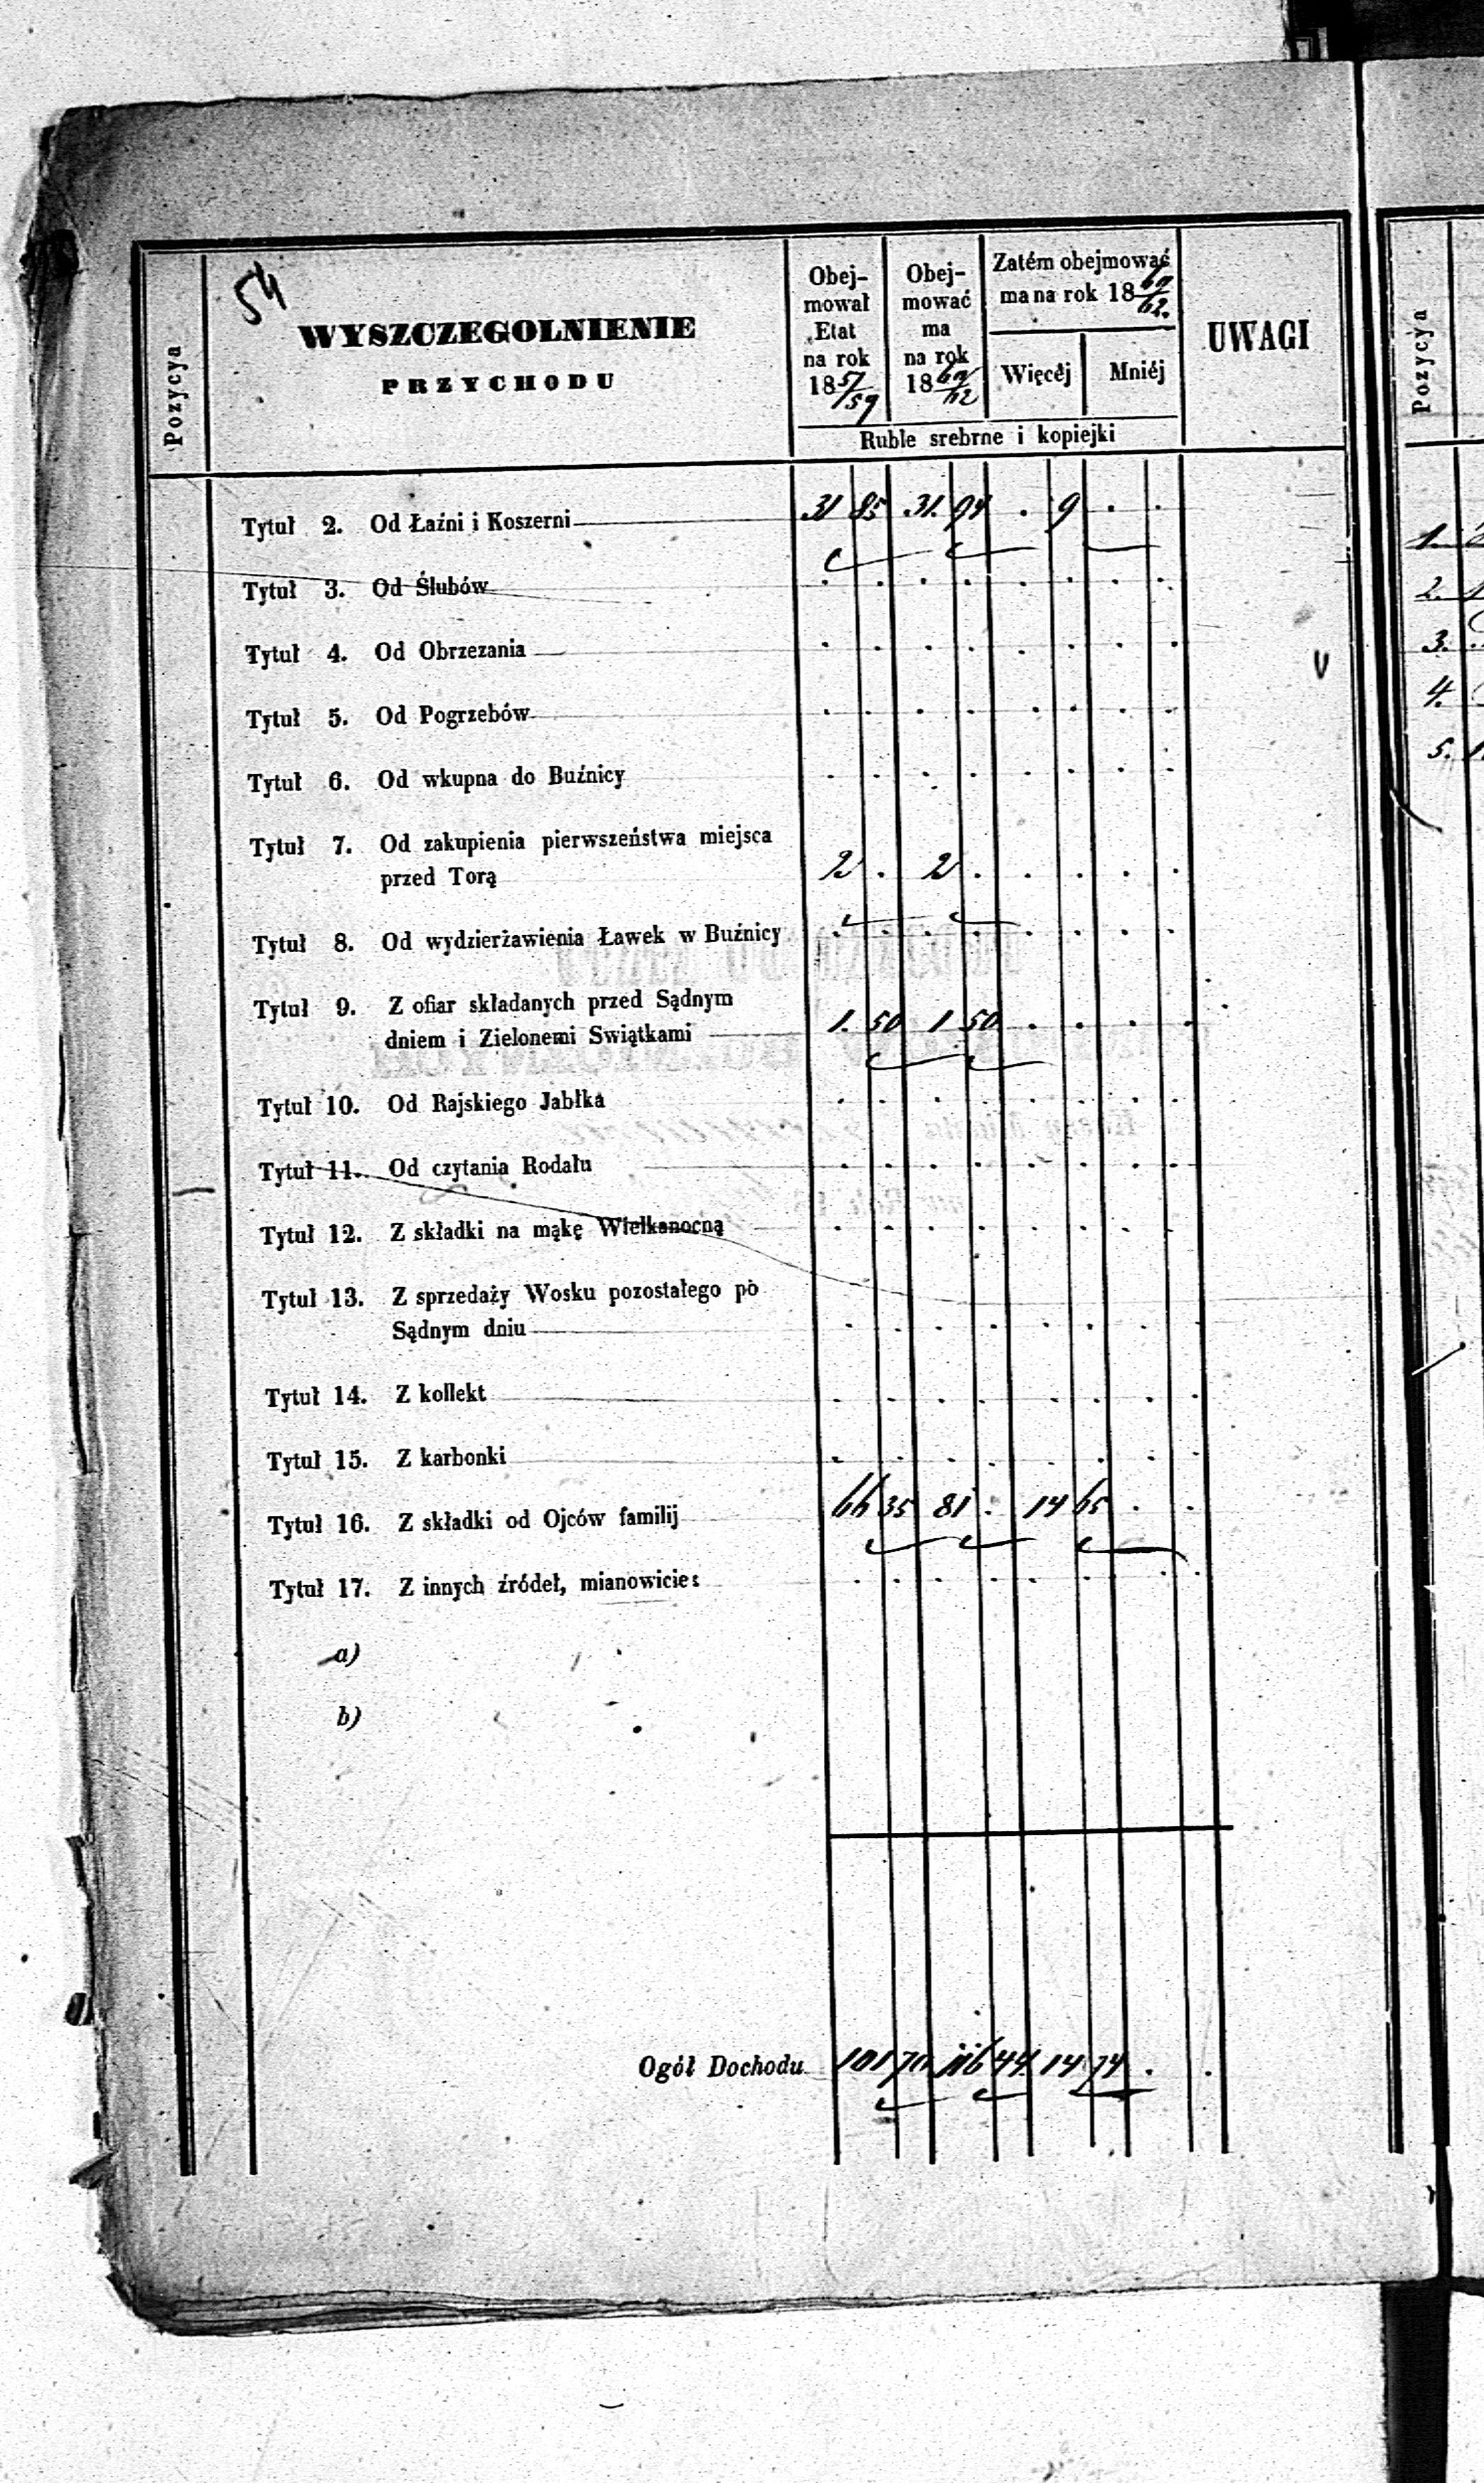 54
Pozycya
WYSZCZEGOLNIENIE
PRZYCHODU
Obej-
mował
Etat
na rok
18 57/59
Obej-
mować
ma
na rok
18 60/62
Zatém obejmować
ma na rok 18 60/62.
Więcéj Mniéj
UWAGI
Ruble srebrne i kopiejki
Tytuł 2. Od Łaźni i Koszerni 31 85 31. 94 . 9 . .
Tytuł 3. Od Ślubów . . . . . . . .
Tytuł 4. Od Obrzezania . . . . . . . .
Tytuł 5. Od Pogrzebów . . . . . . . .
Tytuł 6. Od wkupna do Buźnicy . . . . . . . .
Tytuł 7. Od zakupienia pierwszeństwa miejsca
przed Torą 2 . 2 . . . . .
Tytuł 8. Od wydzierżawienia Ławek w Buźnicy . . . . . . . .
Tytuł 9. Z ofiar składanych przed Sądnym
dniem i Zielonemi Swiątkami 1. 50 1 50 . . . .
Tytuł 10. Od Rajskiego Jabłka . . . . . . . .
Tytuł 11. Od czytania Rodału . . . . . . . .
Tytuł 12. Z składki na mąkę Wielkanocną . . . . . . . .
Tytuł 13. Z sprzedaży Wosku pozostałego po
Sądnym dniu . . . . . . . .
Tytuł 14. Z kollekt . . . . . . . .
Tytuł 15. Z karbonki . . . . . . . .
Tytuł 16. Z składki od Ojców familij 66 35 81 . 14 65 . .
Tytuł 17. Z innych źródeł, mianowicie: . . . . . . . .
a)
b)
Ogół Dochodu 101 70 116 44 14 74 . .
Pozycya
1.
2.
3.
4.
5.